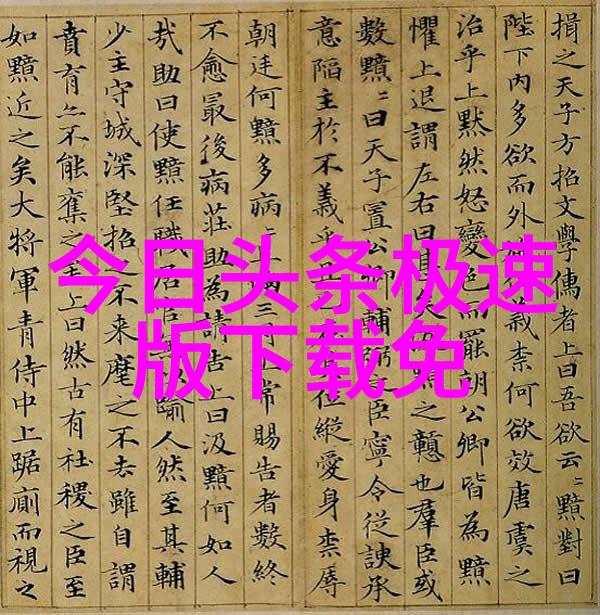 揖之天子方招文學儒者上曰吾欲云〻黯對曰
陛下内多欲而外義柰何欲效唐虞之
治乎上黙然怒變色而罷朝公卿皆為黯
懼上退謂左右曰之戇也羣臣或
數黯〻曰天子置公卿輔弼臣寧令從諛承
意陷主於不義乎位縱愛身柰辱
朝廷何黯多病〻滿三月上常賜告者數終
不愈最後病莊助為請告上曰汲黯何如人
哉助曰使黯任職居官踰人然至其輔
少主守城深堅招之不来麾之不去雖自謂
賁育亦不能奪之矣上曰然古有社稷之臣至
如黯近之矣大將軍青侍中上踞廁而視之
今日头条极速
版下载免